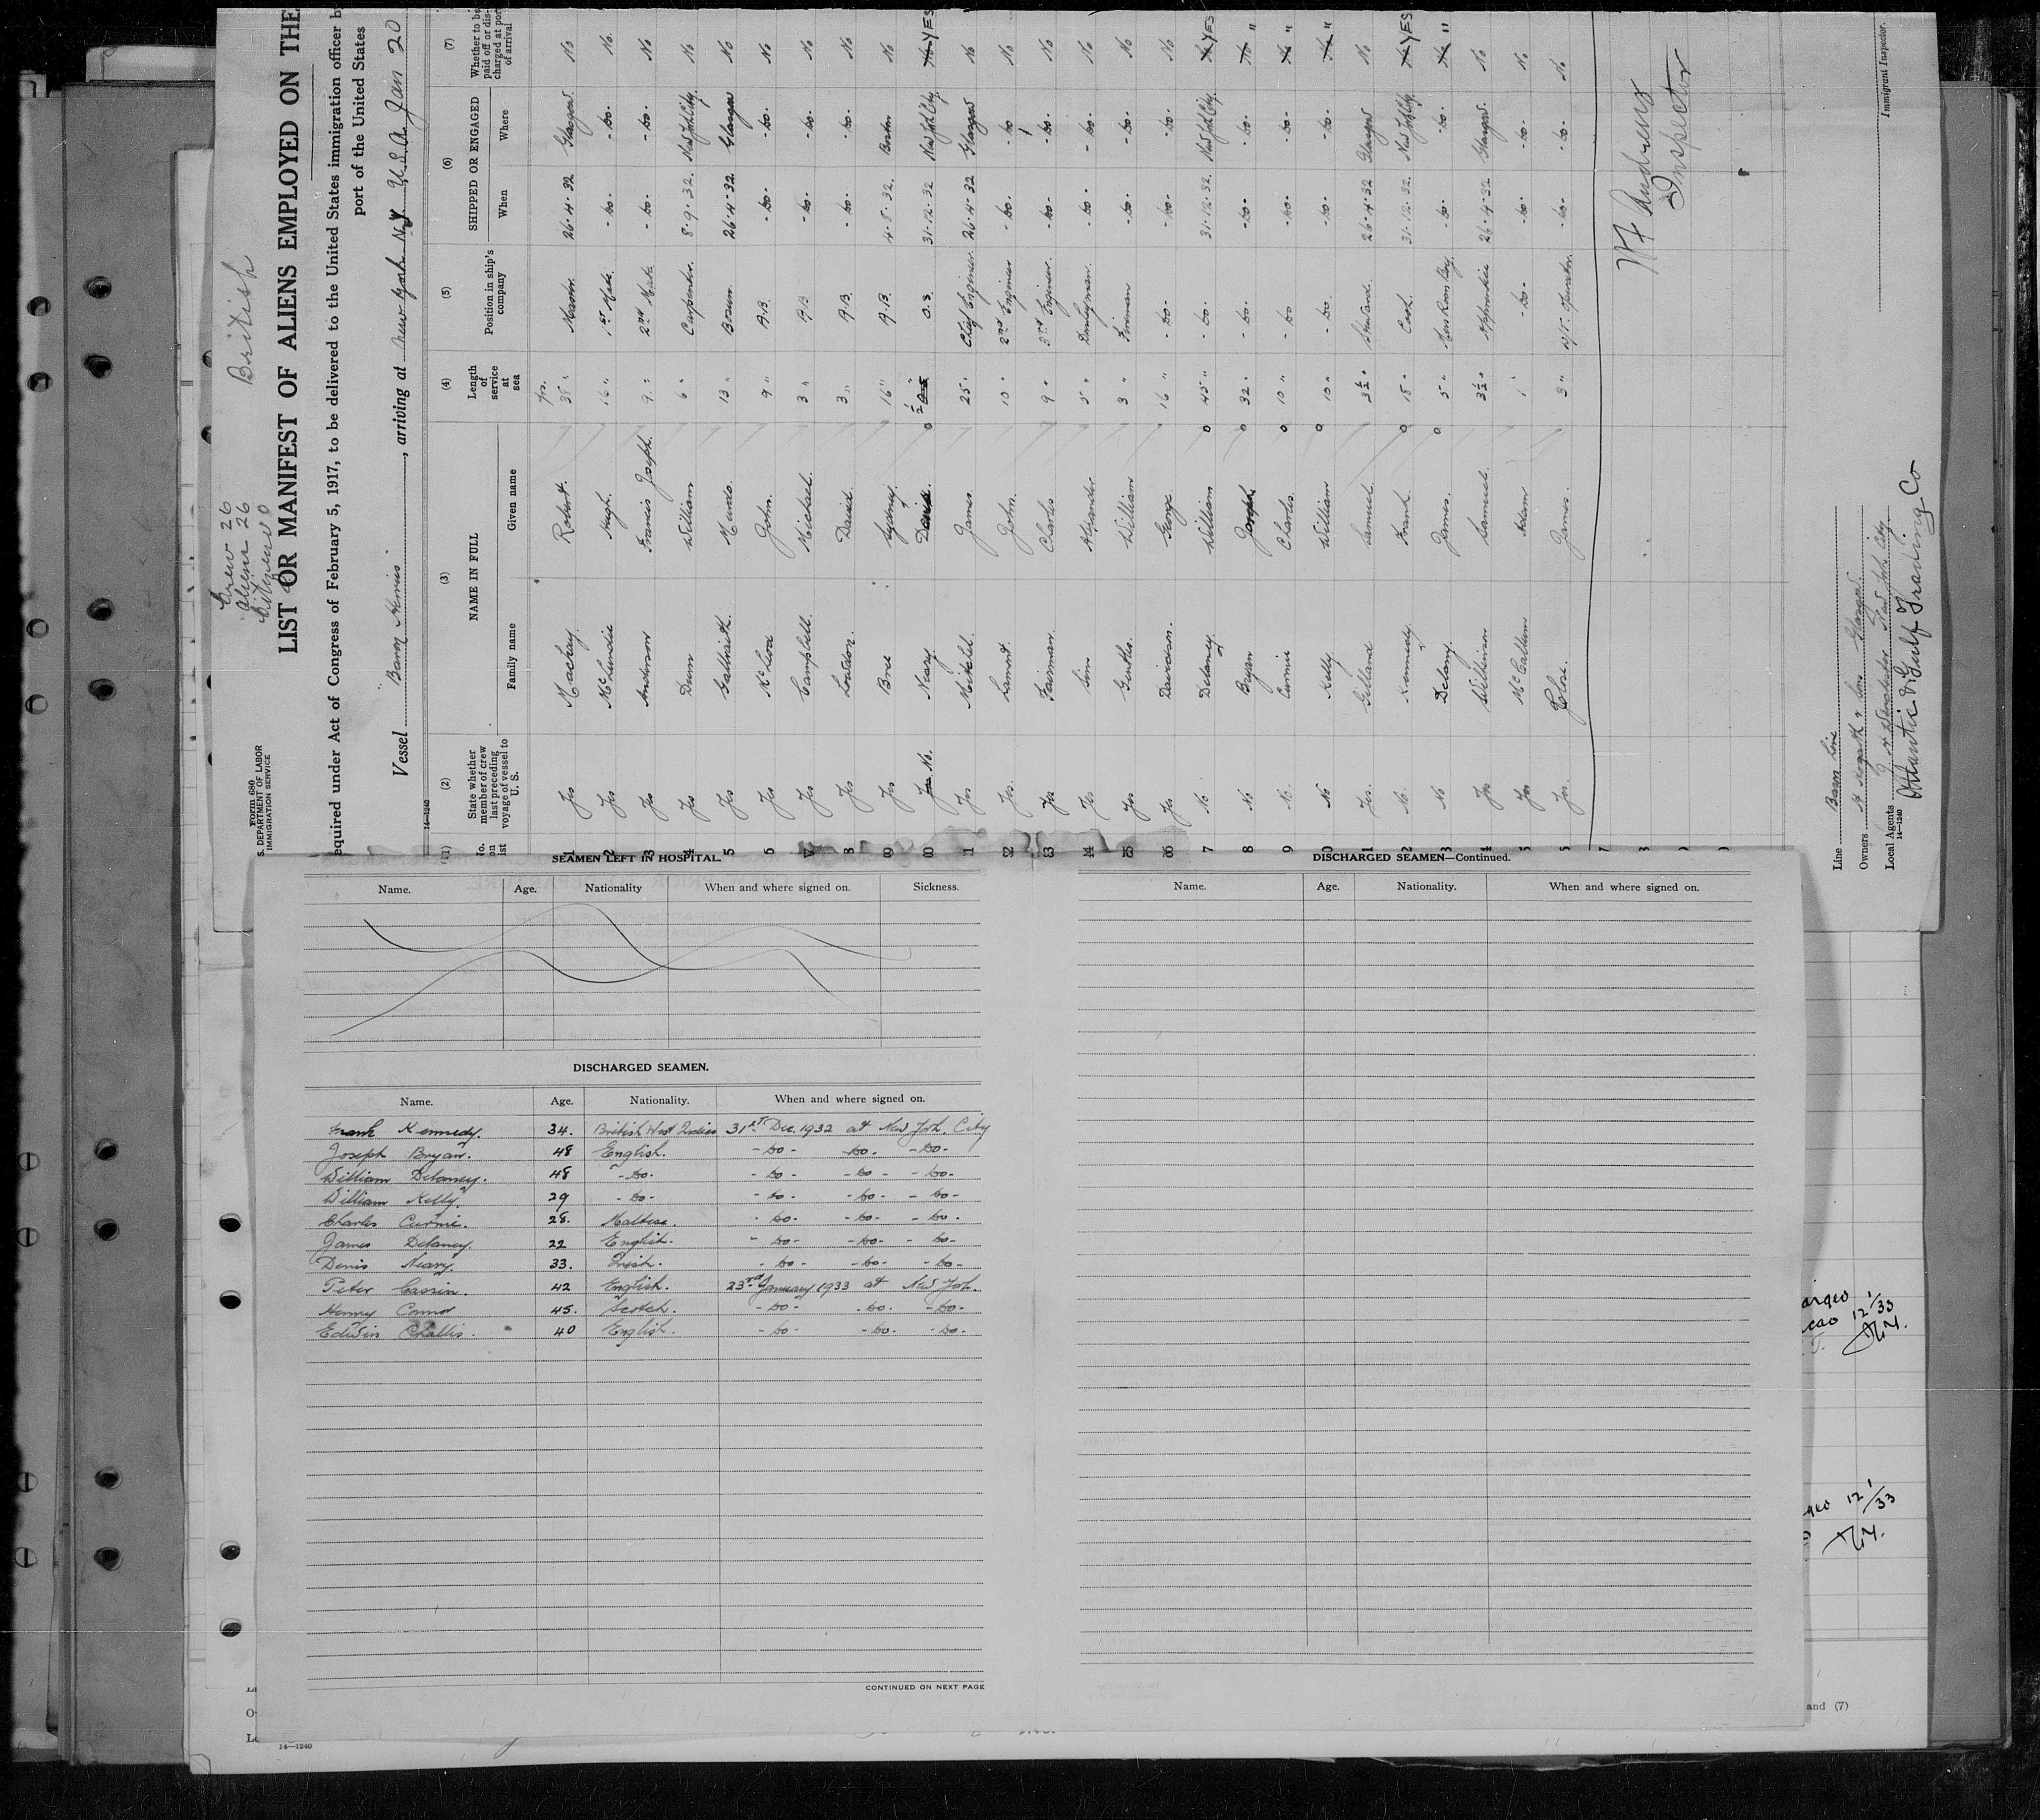 British
Crew 26
Aliens 26
Citizens 0
Form 680
S. DEPARTMENT OF LABOR
IMMIGRATION SERVICE
LIST OR MANIFEST OF ALIENS EMPLOYED ON THE
equired under Act of Congress of February 5, 1917, to be delivered to the United States immigration officer b
port of the United States
Vessel Baron , arriving at New York N.Y. U.S.A. Jan 20
14—1240
(1) (2) (3) (4) (5) (6) (7)
No. on list
State whether member of crew on last preceding voyage of vessel to U. S.
NAME IN FULL
Family name Given name
Length of service at sea
Position in ship's company
SHIPPED OR ENGAGED
When Where
Whether to be paid off or discharged at port of arrival
yrs.
1 Yes Mackay. Robert. 35 " Master. 26.4.32 Glasgow. No
2 Yes McLundie Hugh. 16 " 1st Mate. -do- -do- No.
3 Yes Anderson Francis Joseph. 9 " 2nd Mate. -do- -do- No
4 Yes Dunn William 6 " Carpenter. 8.9.32. New York City. No
5 Yes Galbraith. Mundo. 13 " Bosun. 26.4.32. Glasgow No
6 Yes McLeod John. 9 " A.B. -do- -do- No
7 Yes Campbell. Michael. 3 " A.B. -do- -do- No
8 Yes Louden. David. 3 " A.B. -do- -do- No
9 Yes Bree Sydney. 16 " A.B. 4.8.32. Boston No
0 Yes No. Neary. Denis. 0 ½ O.S. 31.12.32 New York City. No YES
1 Yes Mitchel. James 25 " Chief Engineer. 26.4.32 Glasgow No
2 Yes. Lamont. John. 10 " 2nd Engineer -do- -do No
3 Yes Fairman. Charles 9 " 3rd Engineer. -do- -do- No
4 Yes Sim Alexander. 5 " Donkeyman. -do- -do- No
5 Yes Gentles. William 3 " Fireman -do- -do- No
6 Yes Davidson. George. 16 " -do- -do- -do- No
7 No Delaney William 0 45 " -do- 31.12.32. New York City. No YES
8 No Bryan Joseph. 0 32 " -do- -do- -do- No "
9 No. Curmie Charles. 0 10 " -do -do- -do- No "
0 No Kelly. William 0 10 " -do. -do- -do- No "
1 Yes. Gilland Samuel. 3½ " Steward. 26.4.32 Glasgow No
2 No. Kennedy. Frank 0 18 " Cook. 31.12.32. New York City. No YES
3 No Delany. James. 0 5 " Mess Room Boy. -do- -do- No "
4 Yes Wilkinson Samuel. 3½ " Apprentice 26.4.32 Glasgow. No
5 Yes McCallum Adam 1 " -do- -do- -do- No
6 Yes. Close. James. 3 " W/T. Operator. -do- -do- No
W F Andrews
Inspector
Line Baron Line
Owners H. Hogarth & Sons Glasgow
Local Agents New York City
Atlantic & Gulf Trading Co
14—1240
Immigrant Inspector.
SEAMEN LEFT IN HOSPITAL.
Name. Age. Nationality When and where signed on. Sickness.
DISCHARGED SEAMEN.
Name. Age. Nationality. When and where signed on.
Frank Kennedy. 34. British West Indies 31st Dec. 1932 at New York. City
Joseph Bryan. 48 English. -do- -do- -do-
William Delaney. 48 -do- -do- -do- -do-
William Kelly. 29 -do- -do- -do- -do-
Charles Curmie. 28. Maltese. -do- -do- -do-
James Delaney. 22 English. -do- -do- -do-
Denis Neary. 33. Irish. -do- -do- -do-
Peter Cassin. 42 English. 23rd January 1933 at New York.
Henry Connor 45. Scotch. -do- -do- -do-
Edwin Challis. 40 English. -do- -do- -do-
CONTINUED ON NEXT PAGE
DISCHARGED SEAMEN—Continued.
Name. Age. Nationality. When and where signed on.
12 1/33
12 1/33
and (7)
14—1240